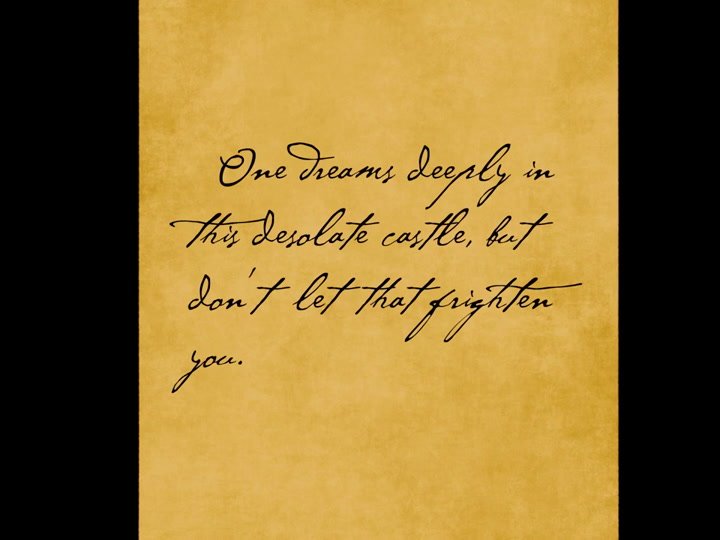 One dreams deeply in
this desolate castle, but
don't let that frighten
you.